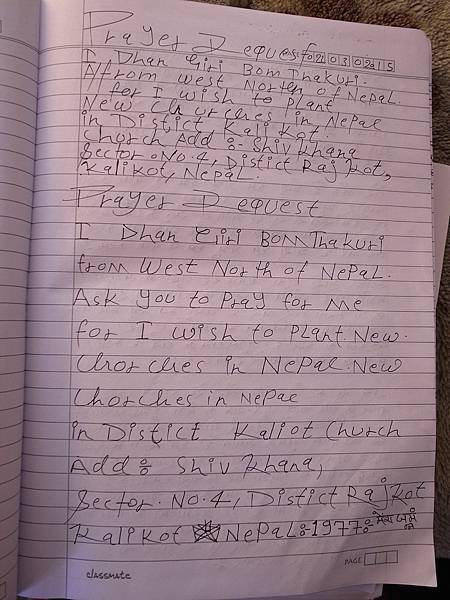 Prayer Request
I Dhan Giri Bom Thakuri.
A from west Norten of Nepal.
for I wish to Plant
New Churches in Nepal
in District Kalikot.
Church Add :- Shiv Khana
Sector.No.4, Distict Raj Kot,
Kalikot, Nepal.
Prayer Request
I Dhan Giri Bom Thakuri
from West North of Nepal.
Ask You to Pray for me
for I wish to Plant New.
Chorches in Nepal New
Chorches in Nepal
in Distict Kaliot Church
Add : Shiv Khana,
Sector.No.4, Distict Rajkot
Kalikot Nepal : 1977 :
PAGE
classmate